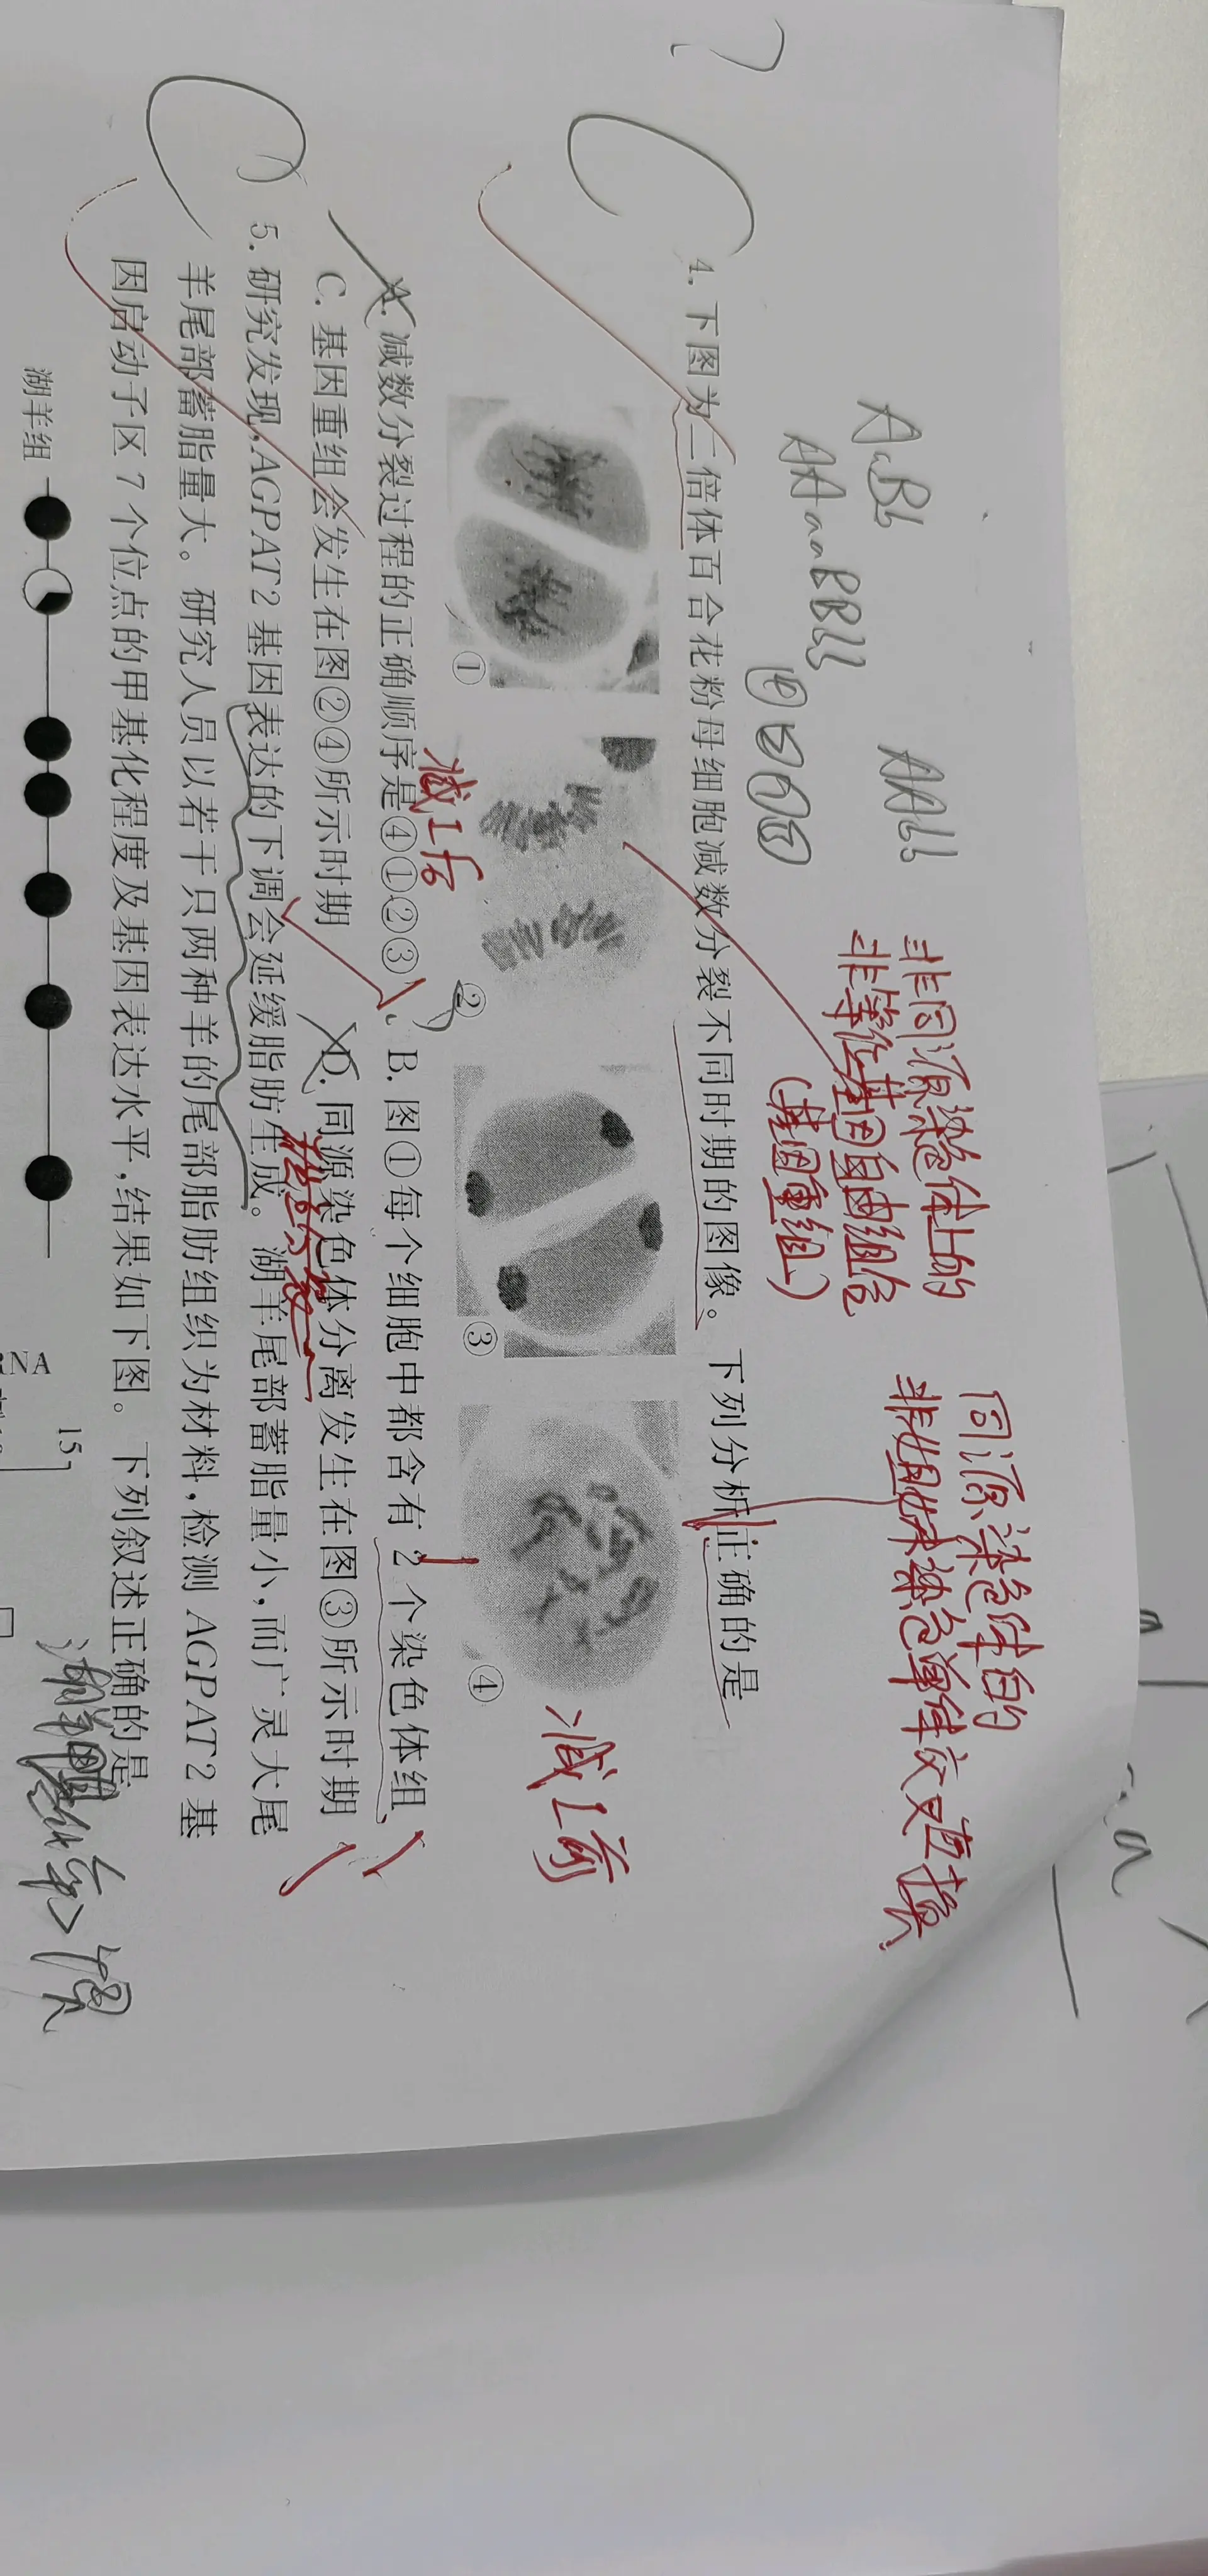 AaBb
AAaaBBbb
AAbb
非同源染色体上的
非等位基因自由组合
(基因重组)
同源染色体的
非姐妹染色单体交叉互换
4. 下图为二倍体百合花粉母细胞减数分裂不同时期的图像。下列分析正确的是
① ② ③ ④
减Ⅰ后
减Ⅰ前
A. 减数分裂过程的正确顺序是④①②③ B. 图①每个细胞中都含有 2 个染色体组
C. 基因重组会发生在图②④所示时期 D. 同源染色体分离发生在图③所示时期
5. 研究发现,AGPAT2 基因表达的下调会延缓脂肪生成。湖羊尾部蓄脂量小,而广灵大尾
羊尾部蓄脂量大。研究人员以若干只两种羊的尾部脂肪组织为材料,检测 AGPAT2 基
因启动子区 7 个位点的甲基化程度及基因表达水平,结果如下图。下列叙述正确的是
湖羊组
15